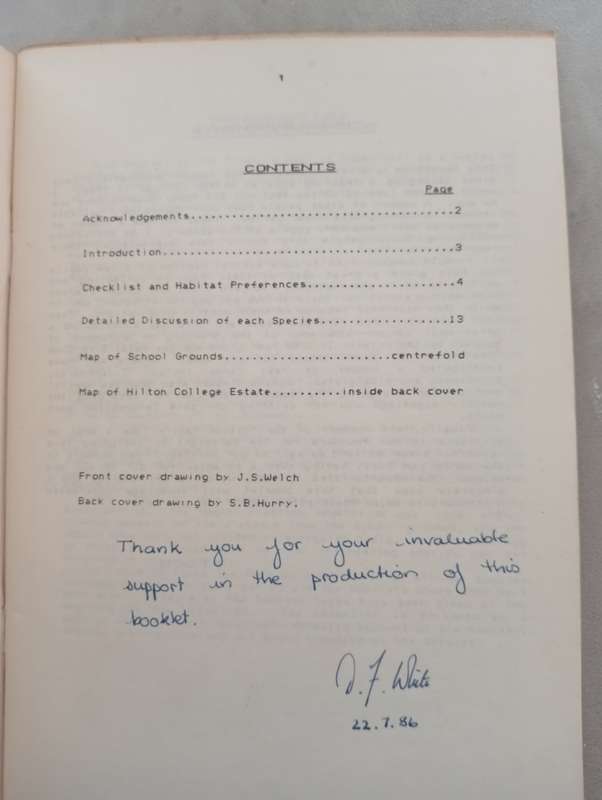 1
CONTENTS
Page
Acknowledgements.....................................2
Introduction.........................................3
Checklist and Habitat Preferences.....................4
Detailed Discussion of each Species..................13
Map of School Grounds........................centrefold
Map of Hilton College Estate..........inside back cover
Front cover drawing by J.S.Welch
Back cover drawing by S.B.Hurry.
Thank you for your invaluable
support in the production of this
booklet.
D. F. White
22.7.86